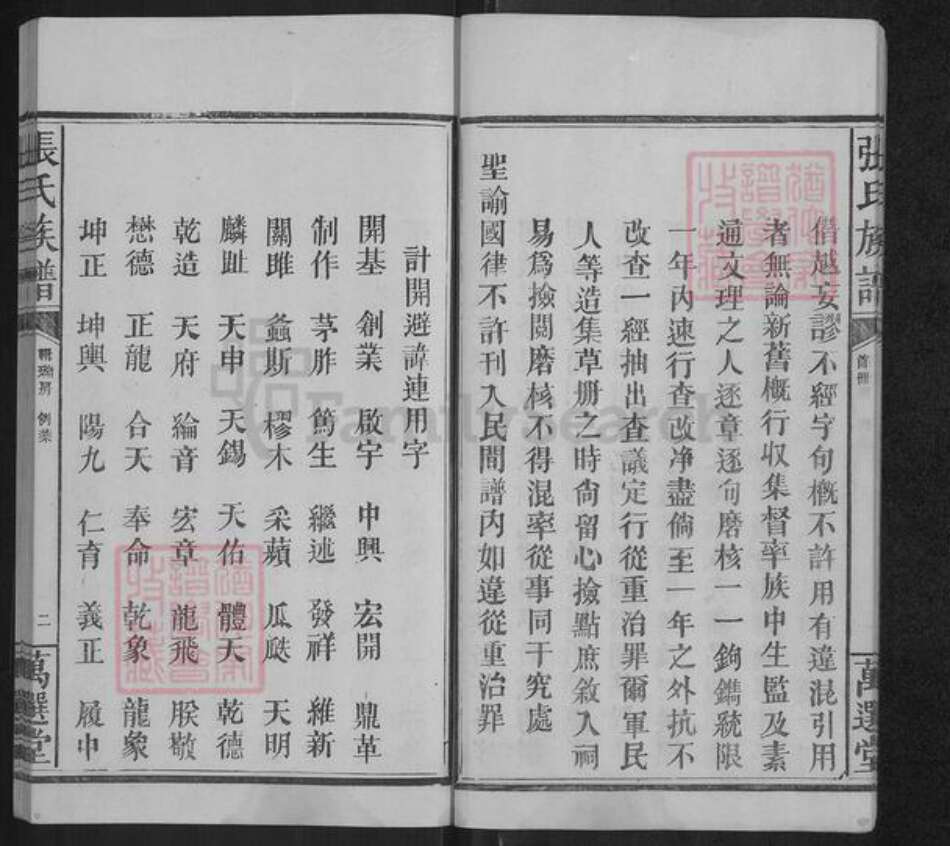 張氏族譜
首冊
萬選堂
僭越妄謬不經字句概不許用有違混引用
者無論新舊概行収集督率族中生監及素
通文理之人逐章逐句磨核一一鉤鐫統限
一年內速行查改净盡倘至一年之外抗不
改查一經抽出查議定行從重治罪爾軍民
人等造集草册之時尙留心撿點庶敘入祠
易爲撿閱磨核不得混率從事同干究處
聖諭國律不許刊入民間譜内如違從重治罪
計開避諱連用字
開基 創業 啟宇 中興 宏開 鼎革
制作 茅胙 篤生 繼述 發祥 維新
關雎 螽斯 樛木 采蘋 瓜瓞 天明
麟趾 天申 天錫 天佑 體天 乾德
乾造 天府 綸音 宏章 龍飛 朕敬
懋德 正龍 合天 奉命 乾象 龍象
坤正 坤輿 陽九 仁育 義正 履中
張氏族譜
輯瑞房 例業
二
萬選堂
FamilySearch